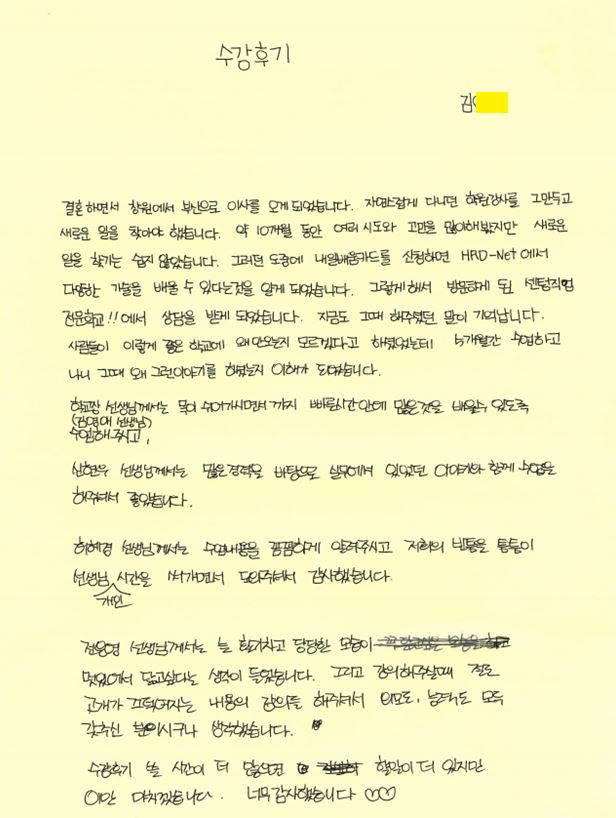 수강후기
김
결혼하면서 창원에서 부산으로 이사를 오게 되었습니다. 자연스럽게 다니던 학원강사를 그만두고
새로운 일을 찾아야 했습니다. 약 10개월 동안 여러 시도와 고민을 많이해봤지만 새로운
일을 찾기는 쉽지 않았습니다. 그러던 도중에 내일배움카드를 신청하면 HRD-Net에서
다양한 기술을 배울 수 있다는것을 알게 되었습니다. 그렇게해서 방문하게 된 센텀직업
전문학교!!에서 상담을 받게 되었습니다. 지금도 그때 해주셨던 말이 기억납니다.
사람들이 이렇게 좋은 학교에 왜 안오는지 모르겠다고 하셨었는데 5개월간 수업하고
나니 그때 왜 그런이야기를 하셨는지 이해가 되었습니다.
학교장 선생님께서는 목이 쉬어가시면서 까지 빠른시간안에 많은것을 배울수 있도록
(김영애 선생님)
수업해주시고,
신현우 선생님께서는 많은경력을 바탕으로 실무에서 있었던 이야기와 함께 수업을
해주셔서 좋았습니다.
허혜경 선생님께서는 수업내용을 꼼꼼하게 알려주시고 저희의 빈틈을 틈틈이
선생님 시간을 써가면서 도와주셔서 감사했습니다.
개인
전용영 선생님께서는 늘 활기차고 당당한 모습이
멋있어서 닮고싶다는 생각이 들었습니다. 그리고 강의해주실때 절로
고개가 끄덕여지는 내용의 강의를 해주셔서 외모도, 능력도 모두
갖추신 분이시구나 생각했습니다.
수강후기 쓸 시간이 더 많으면 할말이 더 있지만
이만 마치겠습니다. 너무감사했습니다 ♡♡